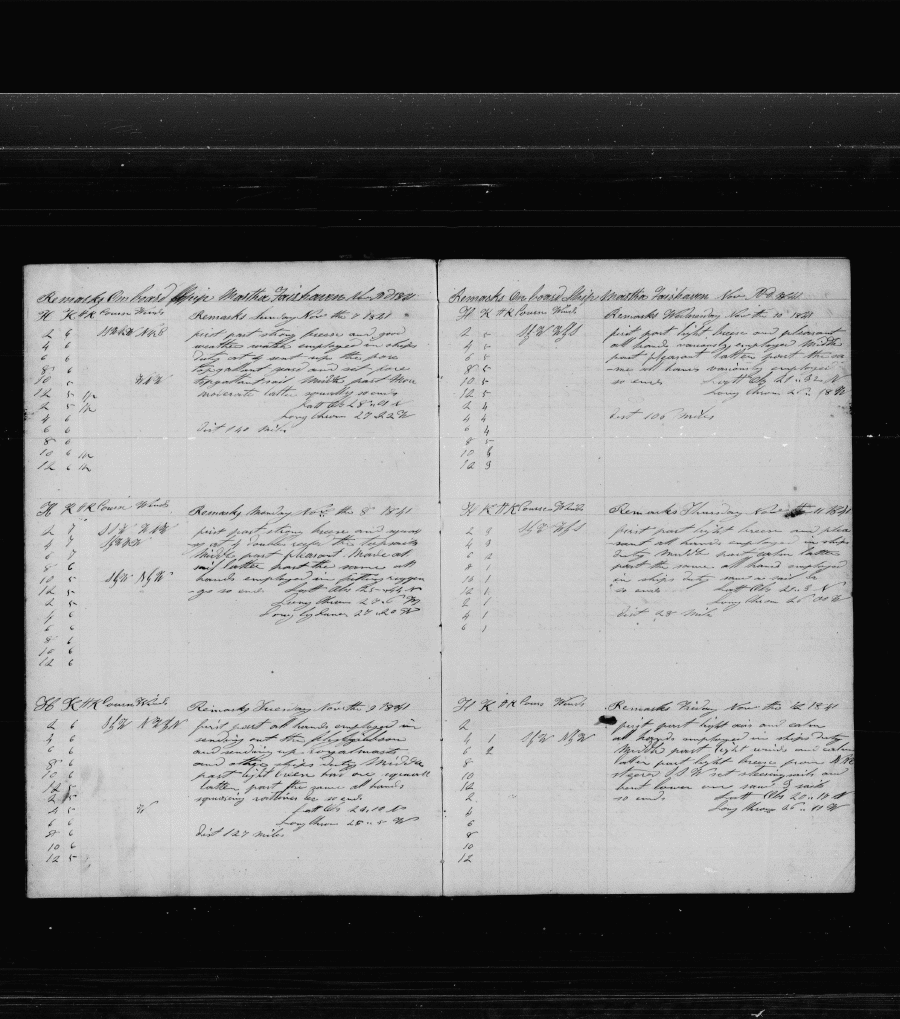 Remarks On board Ship Martha Fairhaven Nov 1841
H K H K Course Winds
Remarks Sunday Nov the 7 1841
2 6
first part strong breese and good
4 6
weather watch employed in ships
6 6
duty at 4 sent up the fore
8 6
topgallant yard and set fore
10 5
topgallant sail Middle part more
12 5 1/2
moderate latter squally so ends
2 5 1/2
Latt Obs 28
4 6
Long Chrom 27 22 W
6 6
Dist 140 miles
8 6
10 6 1/2
12 6 1/2
H K H K Course Winds
Remarks Monday Nov the 8 1841
2 7
first part strong breese and squaly
4 7
at 4 double reeft the topsails
6 7
Middle part pleasant Made all
8 6
sail latter part the same all
10 5
hands employed in fitting riggin
12 5
so ends Latt Obs 25 N
2 5
Long Chrom 27 W
4 6
Long by Lunar 27 20 W
6 6
8 6
10 6
12 6
H K H K Course Winds
Remarks Tuesday Nov the 9 1841
2 6
first part all hands employed in
4 6
sending out the flying jibboom
6 6
and sending up royal masts
8 6
and other ships duty Middle
10 6
part light breese had one squall
12 5
latter part the same all hands
2 5
so ends
4 5 W
Latt Obs 24 10 N
6 6
Long Chrom 28 5 W
8 6
Dist 127 miles
10 6
12 5
Remarks On board Ship Martha Fairhaven Nov 1841
H K H K Course Winds
Remarks Wednesday Nov the 10 1841
2 5
first part light breese and pleasant
4 5
all hands variously employed Middle
6 5
part pleasant latter part the sa
8 5
-me all hands variously employed
10 5
so ends Latt Obs 21 32 N
12 5
Long Chrom 26 18 W
2 4
4 4
Dist 100 miles
6 4
8 5
10 6
12 3
H K H K Course Winds
Remarks Thursday Nov the 11 1841
2 3
first part light breese and plea
4 3
-sant all hands employed in ships
6 2
duty Middle part calm latter
8 1
part the same all hands employed
10 1
in ships duty saw a sail
12 1
so ends Latt Obs 21 3 N
2 1
Long Chrom 26 00 W
4 1
Dist 28 Mile
6 1
H K H K Course Winds
Remarks Friday Nov the 12 1841
2
first part light airs and calm
4 1
all hands employed in ships duty
6 2
Middle part light winds and calm
8
latter part light breese from
10
steered S S W set studdingsails and
12
bent lower one saw 2 sails
2
so ends Latt Obs 20 18 N
4
Long Chrom 26 11 W
6
8
10
12